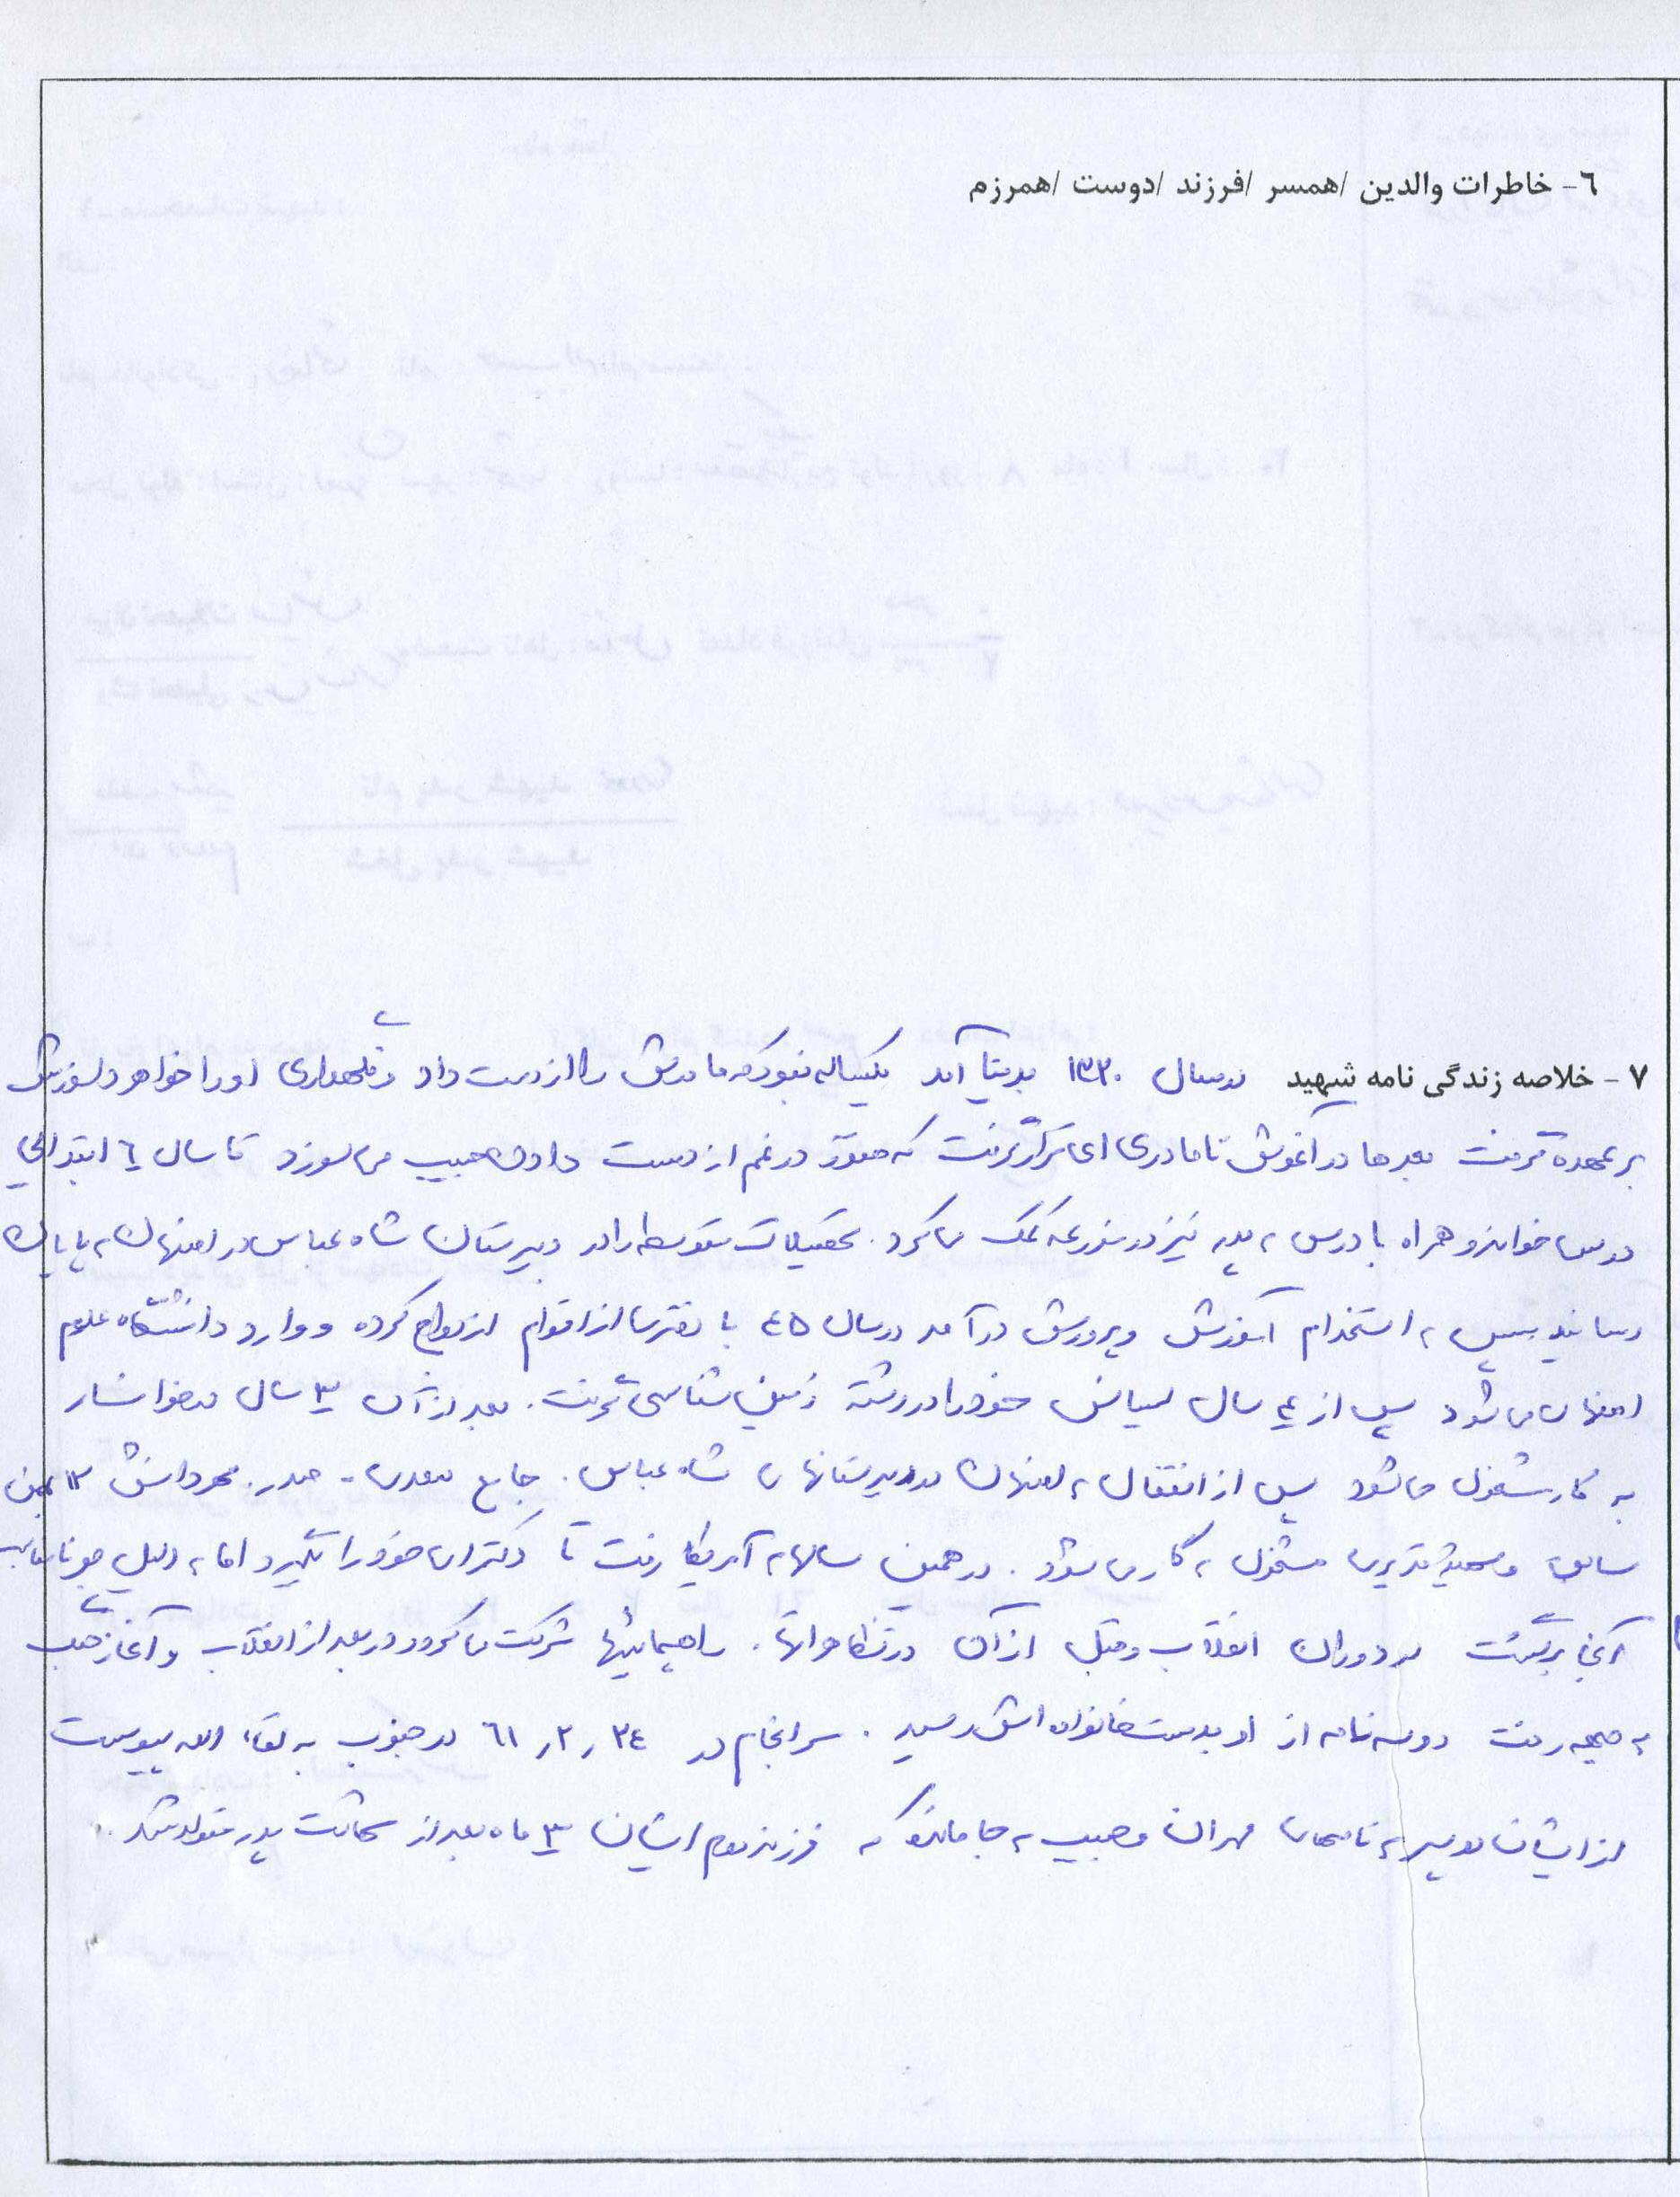 ٦- خاطرات والدین /همسر /فرزند /دوست /همرزم
٧- خلاصه زندگی نامه شهید در سال ۱۳۳۰ بدنیا آمد یکساله نبود که مادرش را از دست داد و نگهداری او را خواهر دلسوزش
بر عهده گرفت بعدها در آغوش نامادری ای قرار گرفت که در غم از دست دادن حبیب می سوزد تا سال ٦ ابتدایی
درس خواند و همراه با درس به پدر نیز در مزرعه کمک می کرد. تحصیلات متوسطه را در دبیرستان شاه عباس در اصفهان به پایان
رسانید سپس به استخدام آموزش و پرورش درآمد در سال ٤۵ با دختری از اقوام ازدواج کرده و وارد دانشگاه علوم
اصفهان می شود پس از ٤ سال لیسانس خود را در رشته زمین شناسی گرفت. بعد از آن ۳ سال در خوانسار
به کار مشغول می شود پس از انتقال به اصفهان در دبیرستانهای شاه عباس. جامع سعدی - صدر. مهر دانش ۱۲ بهمن
سابق و مشغول به کار می شود. در همین سالها به آمریکا رفت تا دکترای خود را بگیرد اما به دلیل جو نامناسب
آنجا برگشت در دوران انقلاب و قبل از آن در تظاهراتها. راهپیمائیها شرکت می کرد و در بعد از انقلاب و آغاز جنگ
به جبهه رفت دو سه نامه از او بدست خانواده اش رسید. سرانجام در ۲٤ ,۲ ,٦۱ در جنوب به لقاء الله پیوست
از ایشان دو پسر به نامهای مهران و حبیب به جا مانده که فرزند دوم ایشان ۳ ماه بعد از شهادت پدر متولد شد.